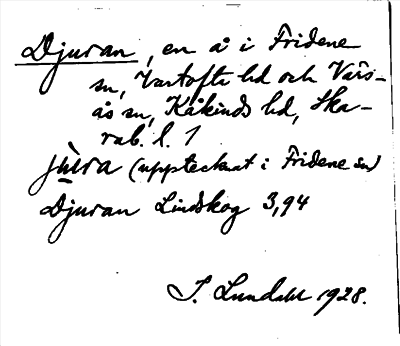 Djuran, en å i Fridene
sn, Vartofta hd och Vårs-
ås sn, Kåkinds hd, Ska-
rab. l. 1
jùra (upptecknat i Fridene sn)
Djuran Lindskog 3,94
I. Lundahl 1928.